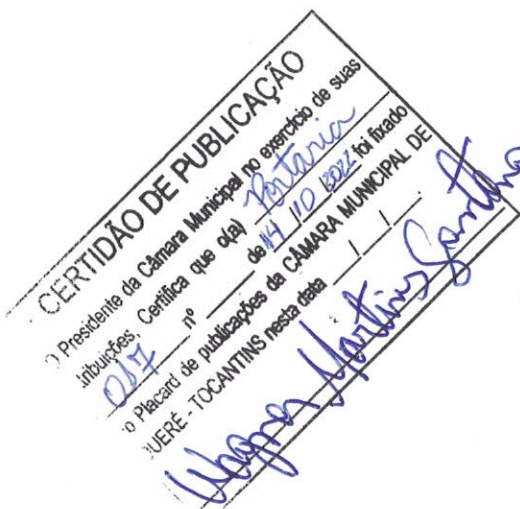 CERTIDÃO DE PUBLICAÇÃO
O Presidente da Câmara Municipal no exercício de suas
tribuições, Certifica que o(a) Portaria
017 nº de 14/10/2022 foi fixado
o Placard de publicações da CÂMARA MUNICIPAL DE
UERÉ - TOCANTINS nesta data / / .
Wagner Martins Santana